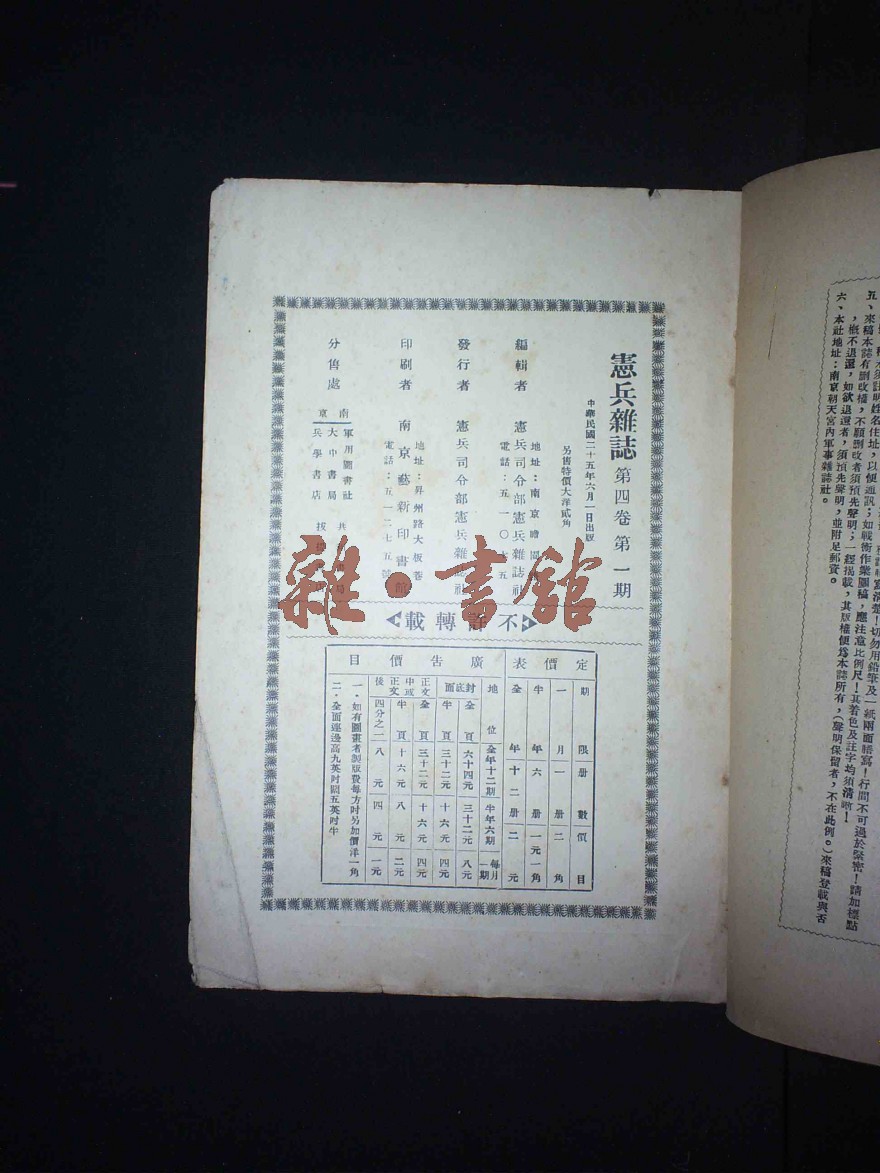 憲兵雜誌 第四卷 第一期
中華民國二十五年六月一日出版
另售特價大洋貳角
編輯者 憲兵司令部憲兵雜誌社
地址：南京瞻園
電話：五一〇六五
發行者 憲兵司令部憲兵雜誌社
印刷者 南京藝新印書館
地址：昇州路大板巷
電話：五一二七五號
分售處
南京
軍用圖書社
大中書局
兵學書店
共
拔
不許轉載
雜·書館
定價表
期限 冊數 價目
一月 一冊 二角
半年 六冊 一元一角
全年 十二冊 二元
廣告價目
地位 全年十二期 半年六期 每月一期
封底面 全頁 六十四元 三十二元 八元
半頁 三十二元 十六元 四元
正文中或正文後 全頁 三十二元 十六元 四元
半頁 十六元 八元 二元
四分之一 八元 四元 一元
一·如有圖畫者製版費每方吋另加價洋一角
二·全面連邊高九英吋闊五英吋半
五、來稿本誌有刪改權，不願刪改者須預先聲明；一經揭載，其版權便為本誌所有，（聲明保留者，不在此例。）來稿登載與否
，概不退還，如欲退還者，須預先聲明，並附足郵資。
六、本社地址：南京朝天宮內軍事雜誌社。